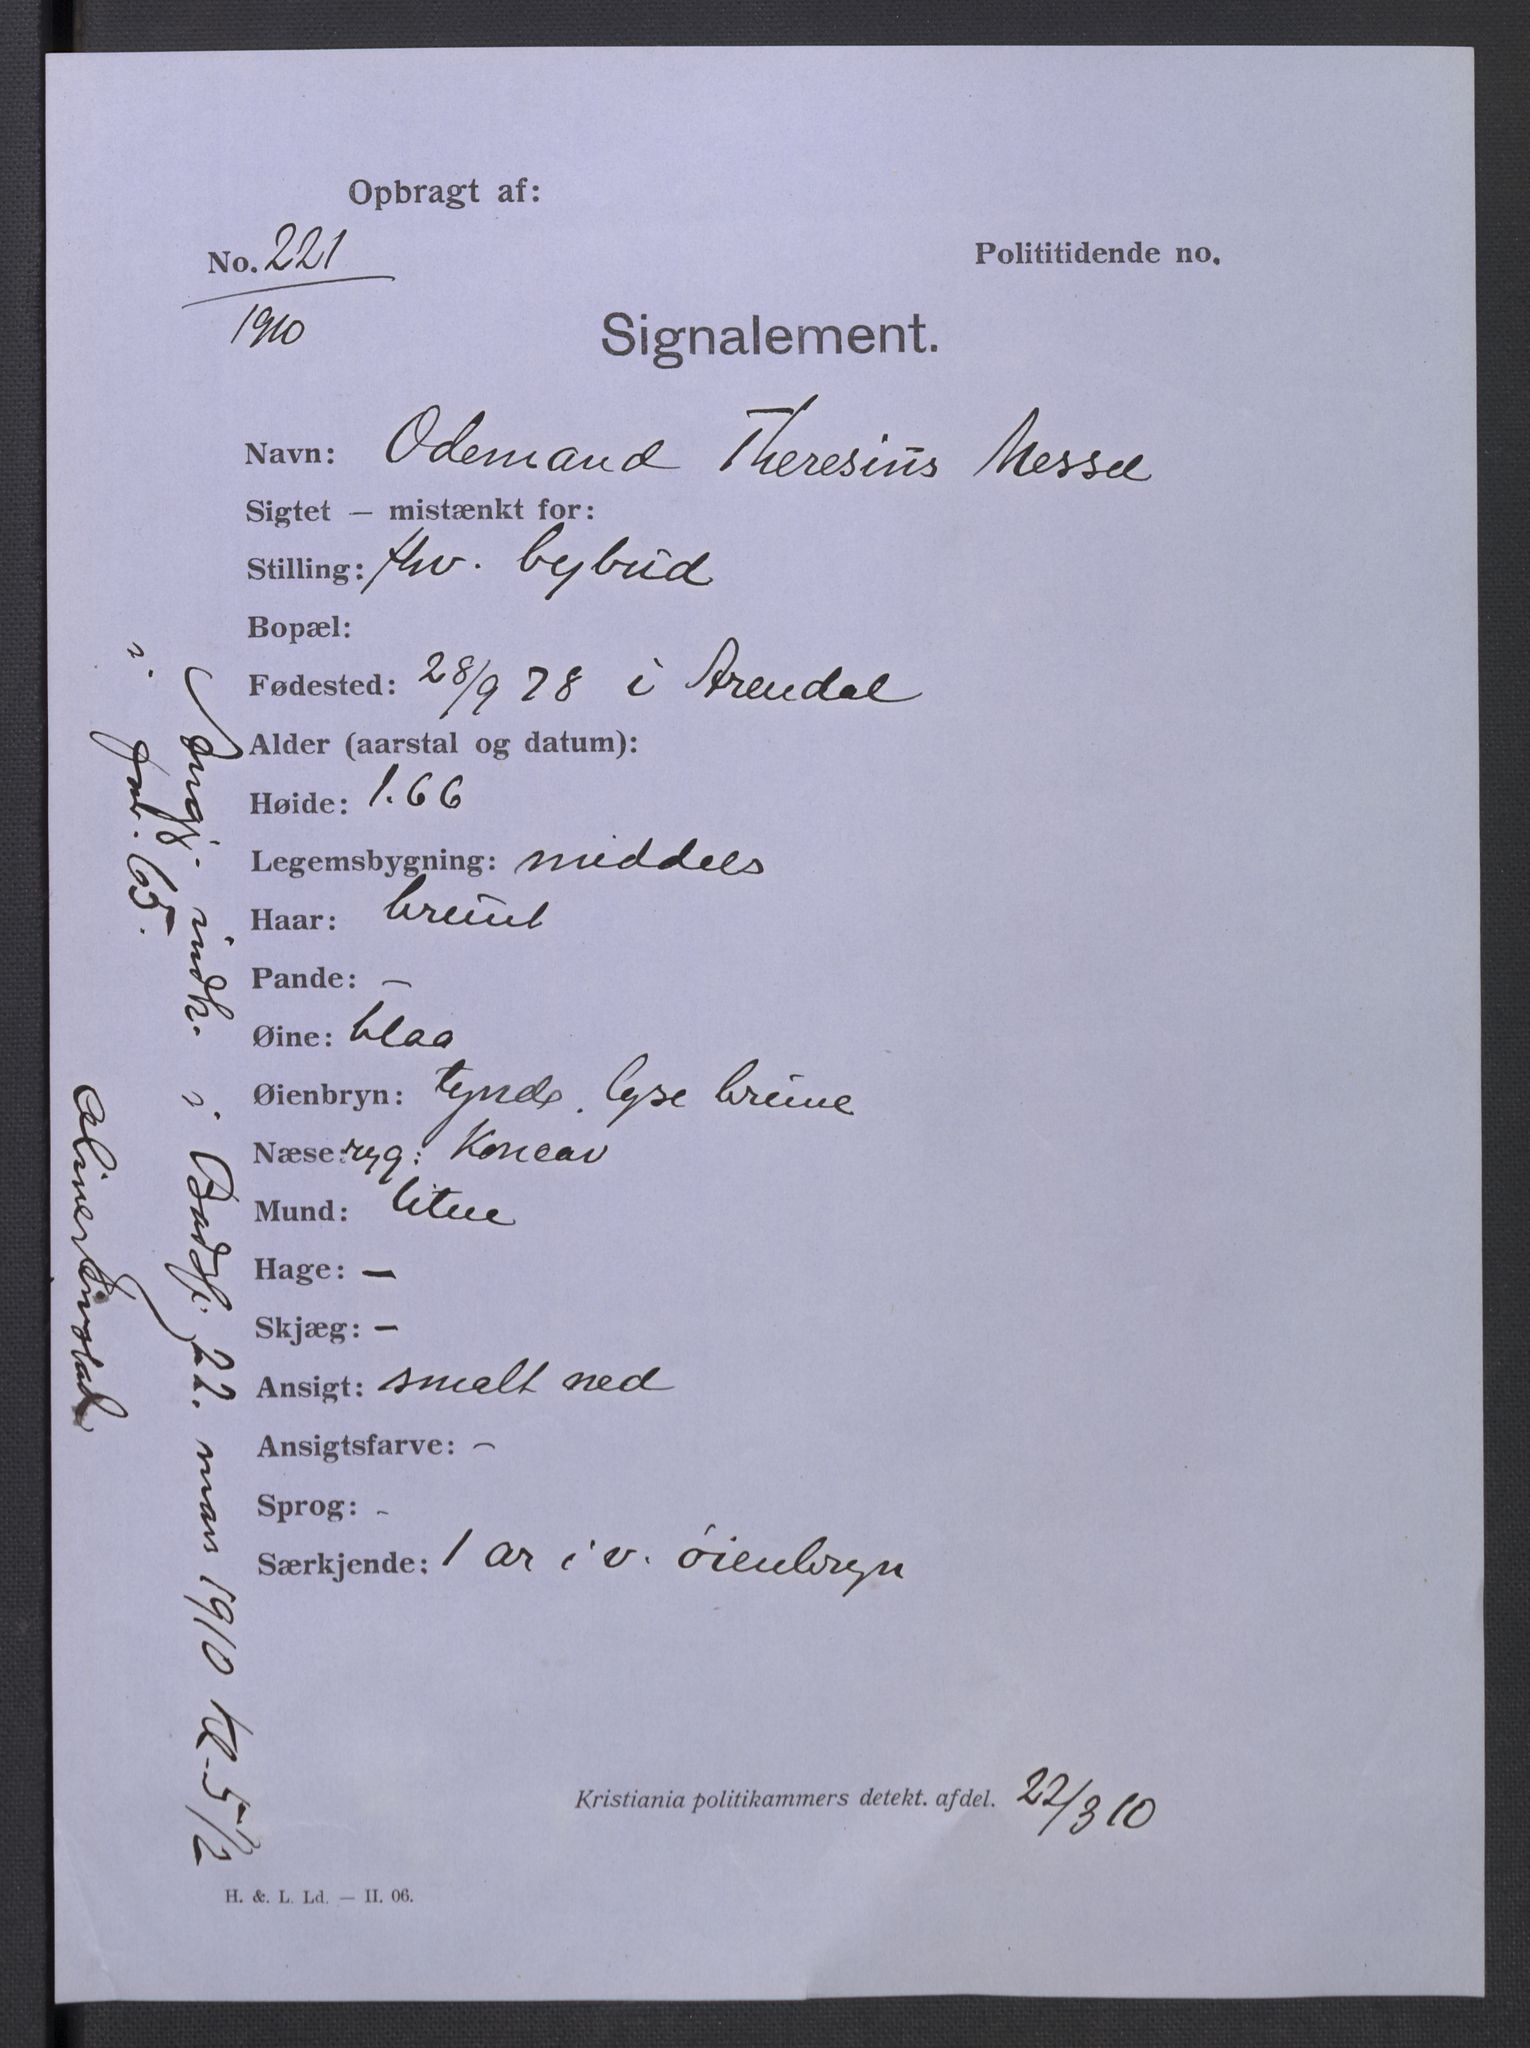 Opbragt af:
No. 221
1910
Polititidende no.
Signalement.
Navn: Odemand Theresius Messel
Sigtet — mistænkt for:
Stilling: fhv. bybud
Bopæl:
Fødested: 28/9 78 i Arendal
Alder (aarstal og datum):
Høide: 1.66
Legemsbygning: middels
Haar: brunt
Pande: -
Øine: blaa
Øienbryn: tynde, lyse brune
Næse: ryg: Koncav
Mund: liten
Hage: -
Skjæg: -
Ansigt: smalt ned
Ansigtsfarve: -
Sprog: -
Særkjende: 1 ar i v. øienbryn
Kristiania politikammers detekt. afdel. 22/3 10
H. & L. Ld. — II. 06.
indk. i 22. mars 1910 kl. 5 1/2
i 65.